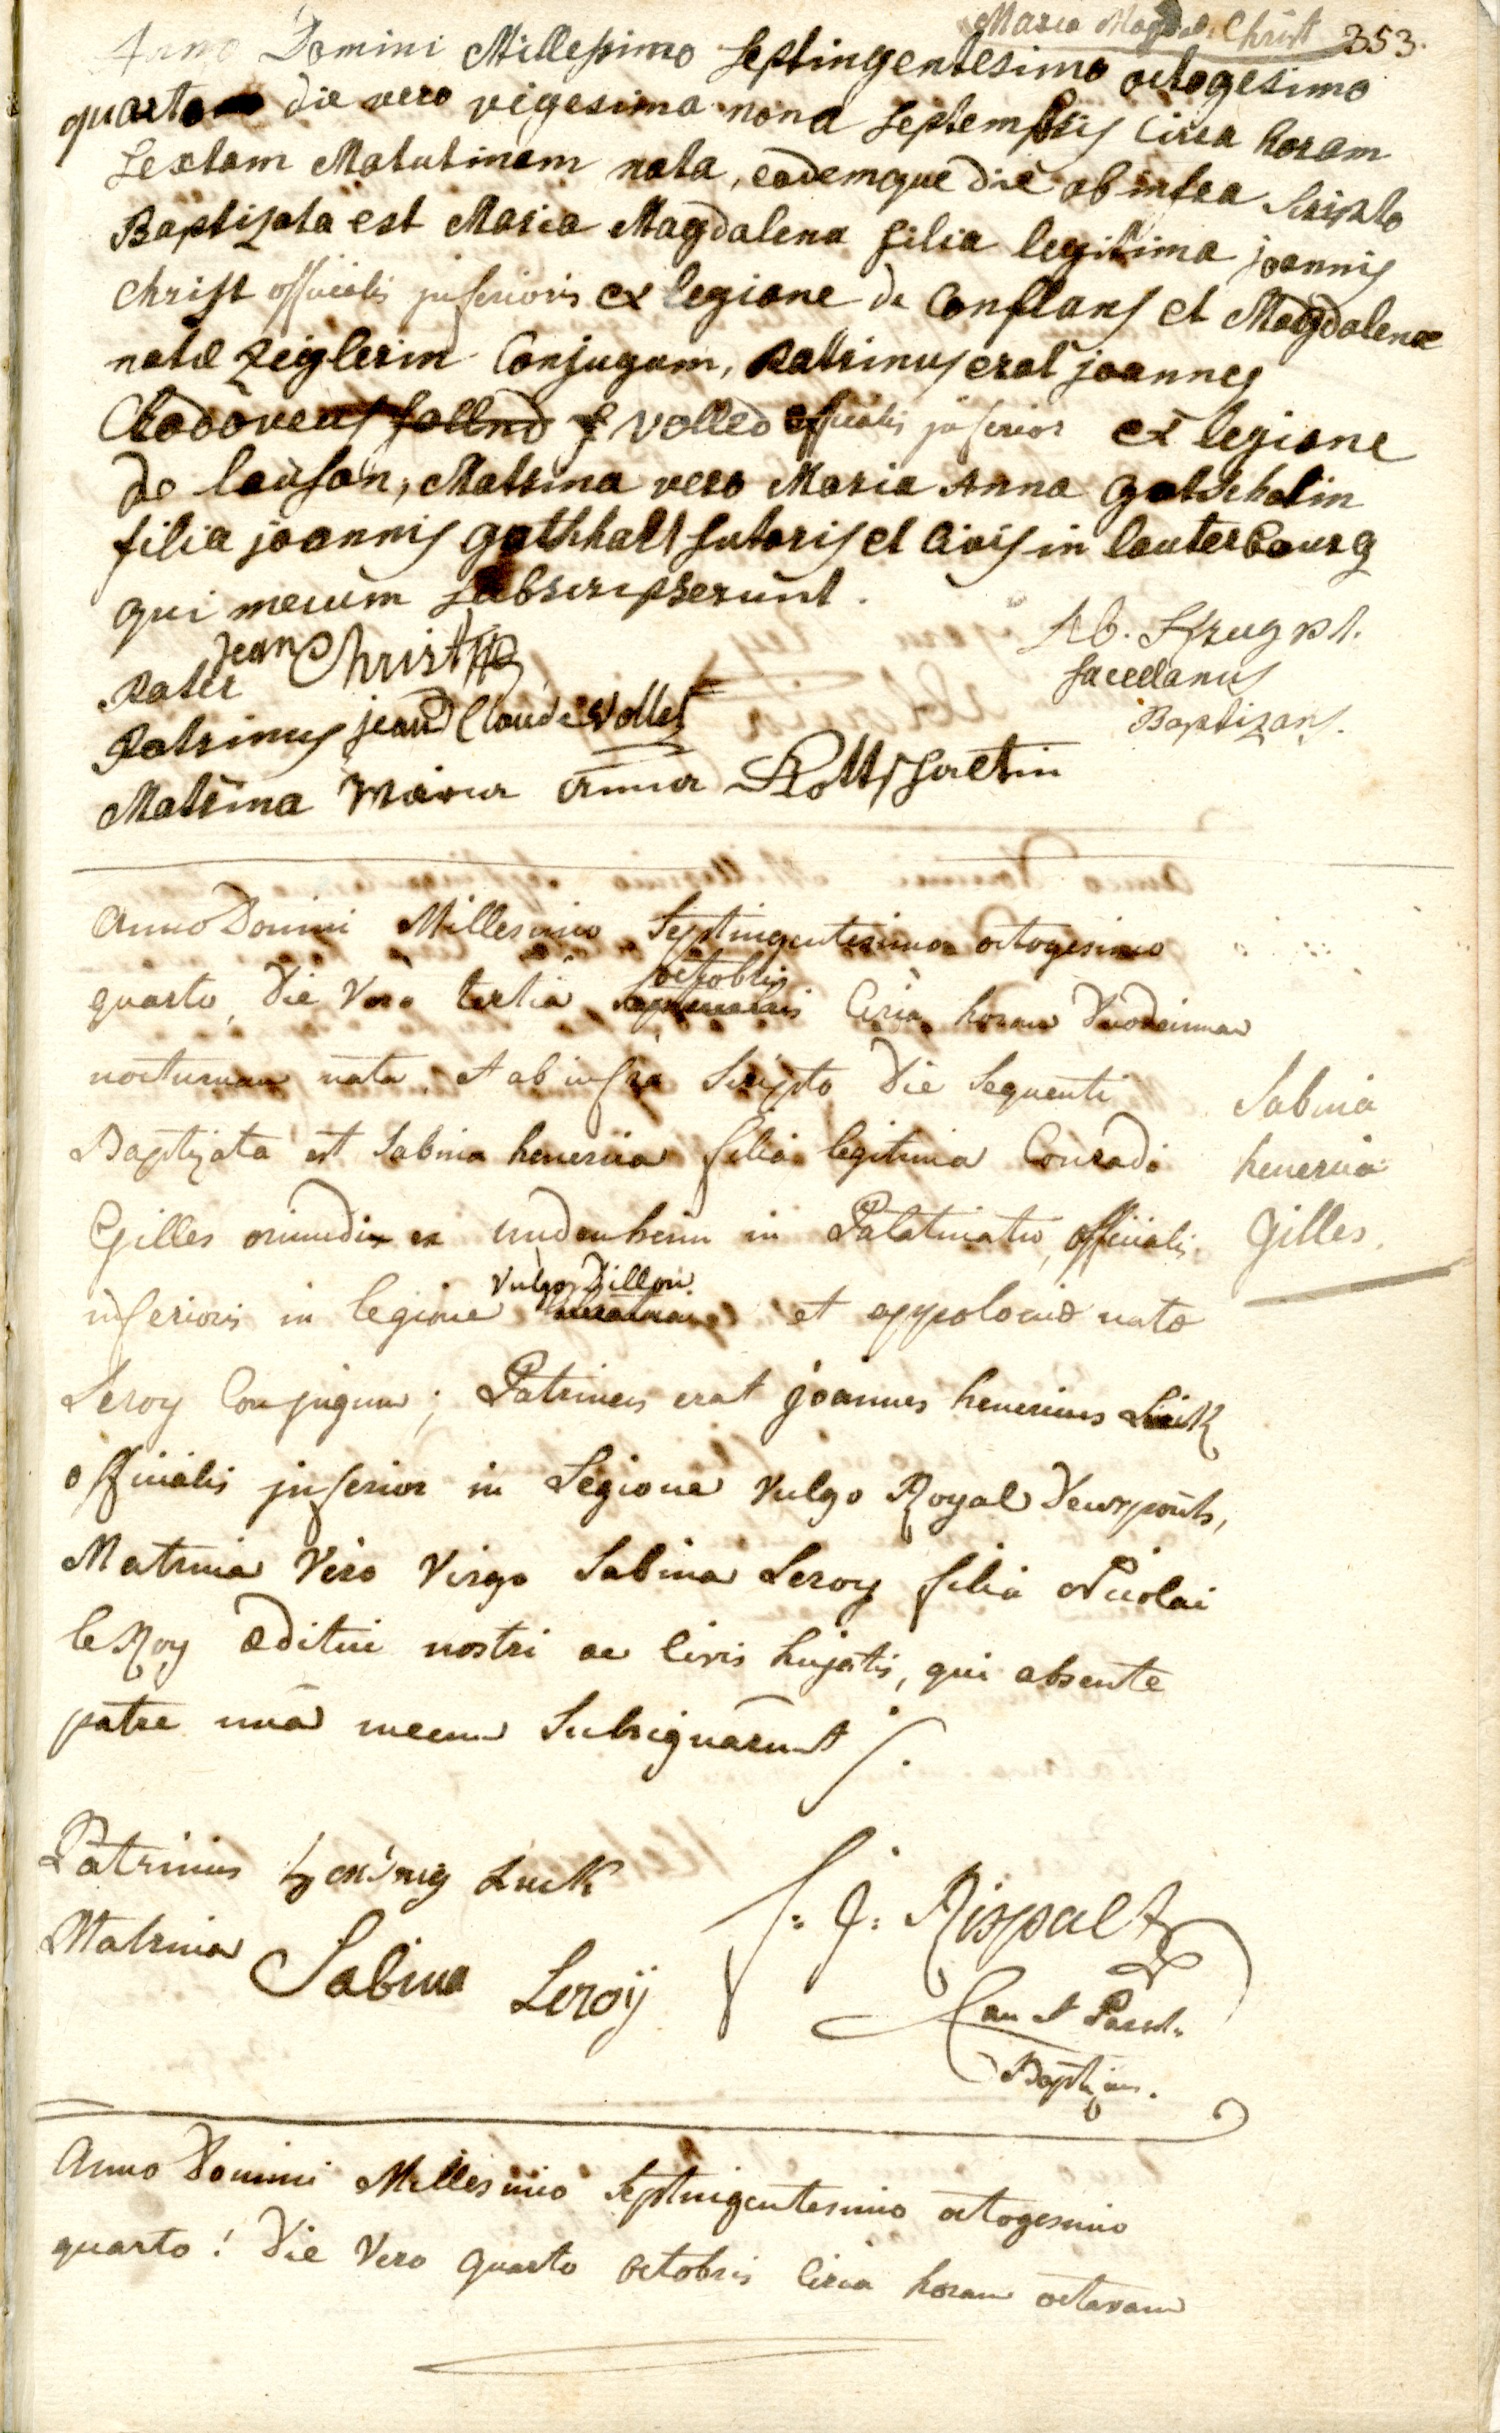 Maria Magdal. Christ 353.
Anno Domini Millesimo Septingentesimo octogesimo
quarto die vero vigesima nona Septembris Circa horam
Sextam Matutinam nata, eademque die ab infra Scripto
Baptizata est Maria Magdalena filia legitima joannis
Christ officialis inferioris ex legione de Conflans et Magdalenæ
natæ Zeiglerin Conjugum, Patrinus erat joannes
volled officialis inferior ex legione
de lauson, Matrina vero Maria Anna Gotschalin
filia joannis gotshalt sutoris et Civis in lauterbourg
qui mecum subscripserunt.
Pater jean Christ
Patrinus jean Claude Vollet
Matrina Maria anna
Sacellanus
Baptizans.
Anno Domini Millesimo Septingentesimo octogesimo
quarto, Die Vero tertiâ octobris Circa horam Duodecimam
nocturnam nata, et ab infra Scripto Die Sequenti
Baptizata est Sabina henerica filia legitima Conradi
Gilles oriundi ex undenheim in Palatinatu, officialis
inferioris in legione Vulgo Dillon et appoloniæ natæ
Leroy Conjugum; Patrinus erat joannes henericus
officialis inferior in Legione Vulgo Royal Deuxponts,
Matrina Vero Virgo Sabina Leroy filia Nicolai
le Roy æditui nostri ac Civis hujatis, qui absente
patre unâ mecum Subsignârunt
Sabina
henerica
Gilles.
Patrinus Luck
Matrina Sabina Leroÿ
f: j: Rispalt
Can et Paroch.
Baptizans.
Anno Domini Millesimo Septingentesimo octogesimo
quarto! Die Vero quarto octobris Circa horam octavam